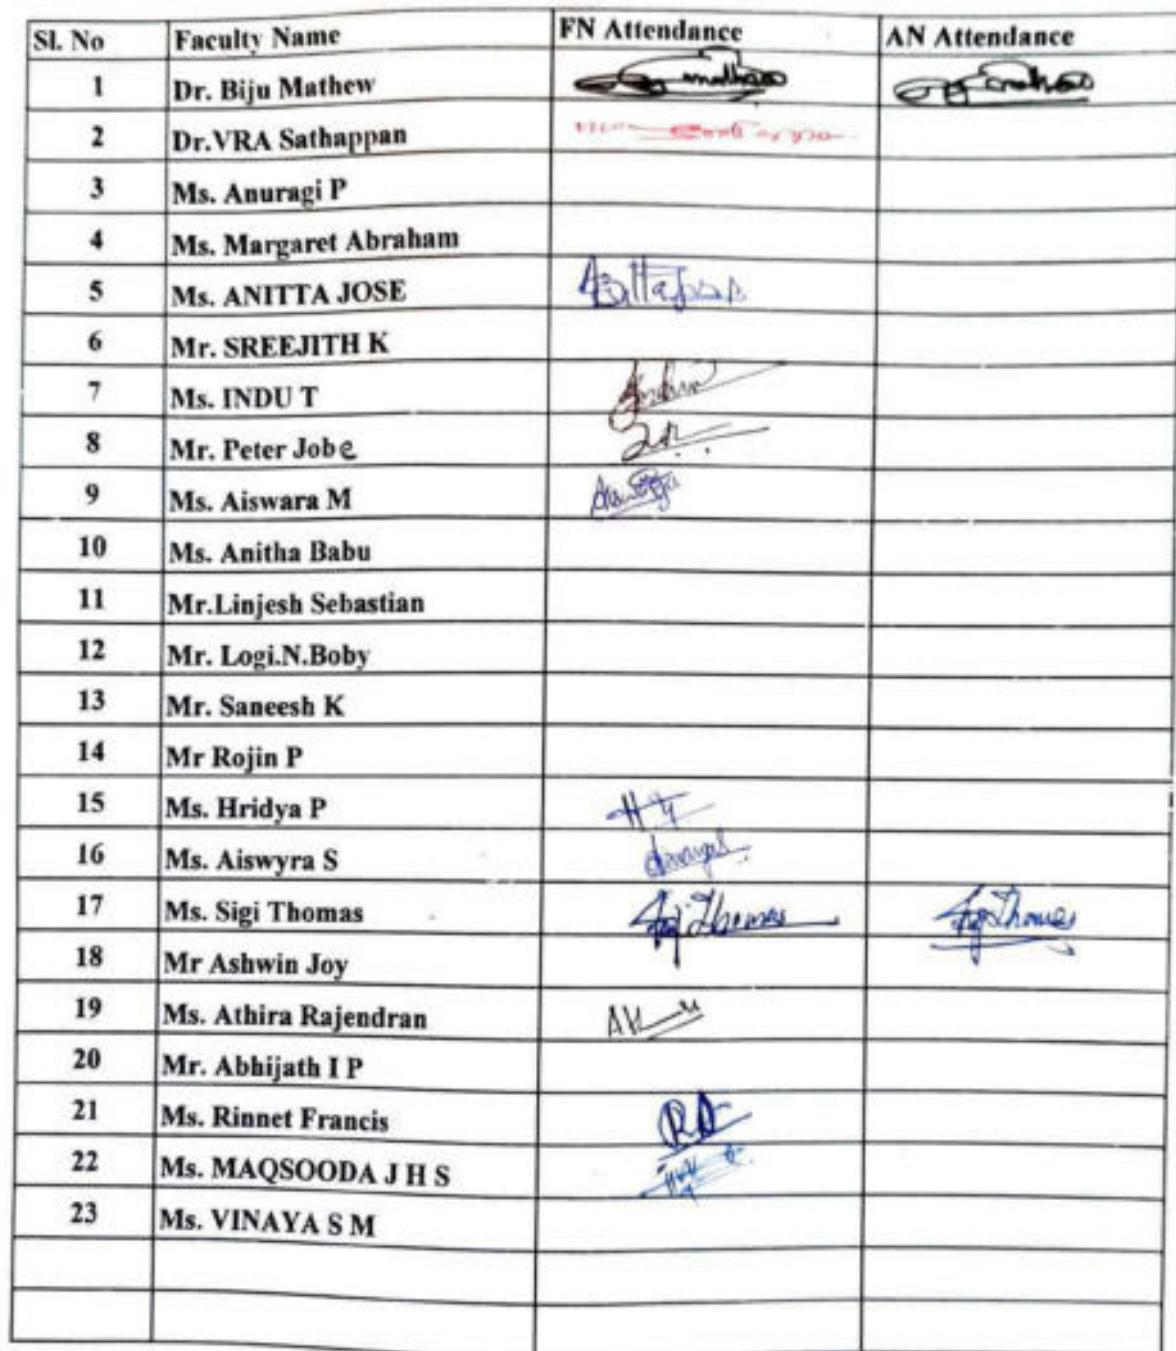 Sl. No Faculty Name FN Attendance AN Attendance
1 Dr. Biju Mathew
2 Dr.VRA Sathappan
3 Ms. Anuragi P
4 Ms. Margaret Abraham
5 Ms. ANITTA JOSE
6 Mr. SREEJITH K
7 Ms. INDU T
8 Mr. Peter Jobe
9 Ms. Aiswara M
10 Ms. Anitha Babu
11 Mr.Linjesh Sebastian
12 Mr. Logi.N.Boby
13 Mr. Saneesh K
14 Mr Rojin P
15 Ms. Hridya P
16 Ms. Aiswyra S
17 Ms. Sigi Thomas Sigi Thomas Sigi Thomas
18 Mr Ashwin Joy
19 Ms. Athira Rajendran
20 Mr. Abhijath I P
21 Ms. Rinnet Francis
22 Ms. MAQSOODA J H S
23 Ms. VINAYA S M